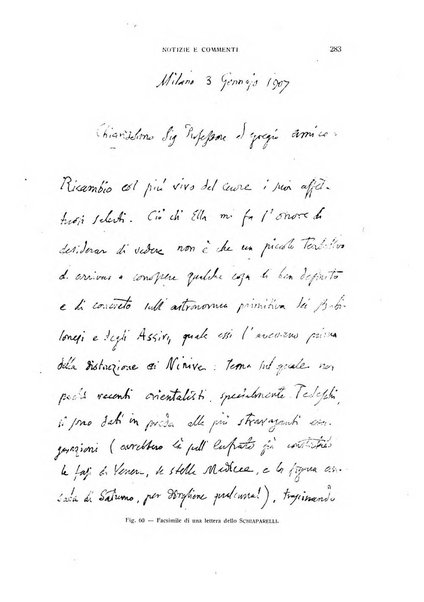 NOTIZIE E COMMENTI 283
Milano 3 Gennajo 1907
Chiarissimo Sig Professore ed egregio amico.
Ricambio col più vivo del cuore i suoi affet-
tuosi saluti. Ciò ch'Ella mi fa l'onore di
desiderar di vedere non è che un piccolo tentativo
di arrivare a conoscere qualche cosa di ben definito
e di concreto sull'astronomia primitiva dei Babi-
lonesi e degli Assirj, quale essi l'avevano prima
della distruzione di Ninive: tema sul quale non
pochi recenti orientalisti, specialmente Tedeschi,
si sono dati in preda alle più stravaganti esa-
gerazioni (avrebbero là sull'Eufrate già constatato
le fasi di Venere, le stelle Medicee, e la figura
di Saturno, per dirgliene qualcuna!), trascinando
Fig. 60 — Facsimile di una lettera dello SCHIAPARELLI.